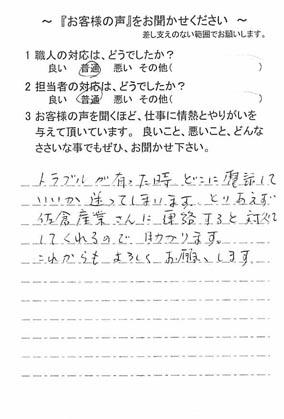 ～『お客様の声』をお聞かせください～
差し支えのない範囲でお願いします。
1 職人の対応は、どうでしたか？
良い 普通 悪い その他( )
2 担当者の対応は、どうでしたか？
良い 普通 悪い その他( )
3 お客様の声を聞くほど、仕事に情熱とやりがいを
与えて頂いています。 良いこと、悪いこと、どんな
ささいな事でもぜひ、お聞かせ下さい。
トラブルが有った時 どこに電話して
いいか 迷ってしまいます。とりあえず
佐倉産業さんに 連絡すると 対処
してくれるので 助かります。
これからも よろしく お願いします。